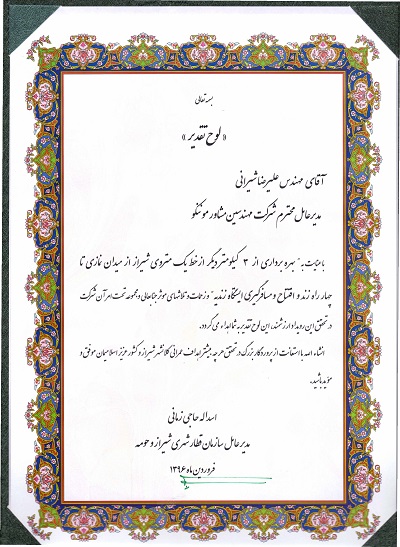 بسمه تعالی
« لوح تقدیر »
آقای مهندس علیرضا شیرانی
مدیرعامل محترم شرکت مهندسین مشاور موننکو
با عنایت به " بهره برداری از ۳ کیلومتر دیگر از خط یک متروی شیراز از میدان نمازی تا
چهار راه زند و افتتاح و مسافرگیری ایستگاه زندیه " و زحمات و تلاشهای موثر جنابعالی و مجموعه تحت امر آن شرکت
در تحقق این رویداد ارزشمند، این لوح تقدیر به شما اهداء می گردد.
انشاء الله با استعانت از پروردگار بزرگ در تحقق هر چه بیشتر اهداف عمرانی کلانشهر شیراز و کشور عزیز اسلامیمان موفق و
موید باشید.
اسداله حاجی زمانی
مدیرعامل سازمان قطار شهری شیراز و حومه
فروردین ماه ۱۳۹۶